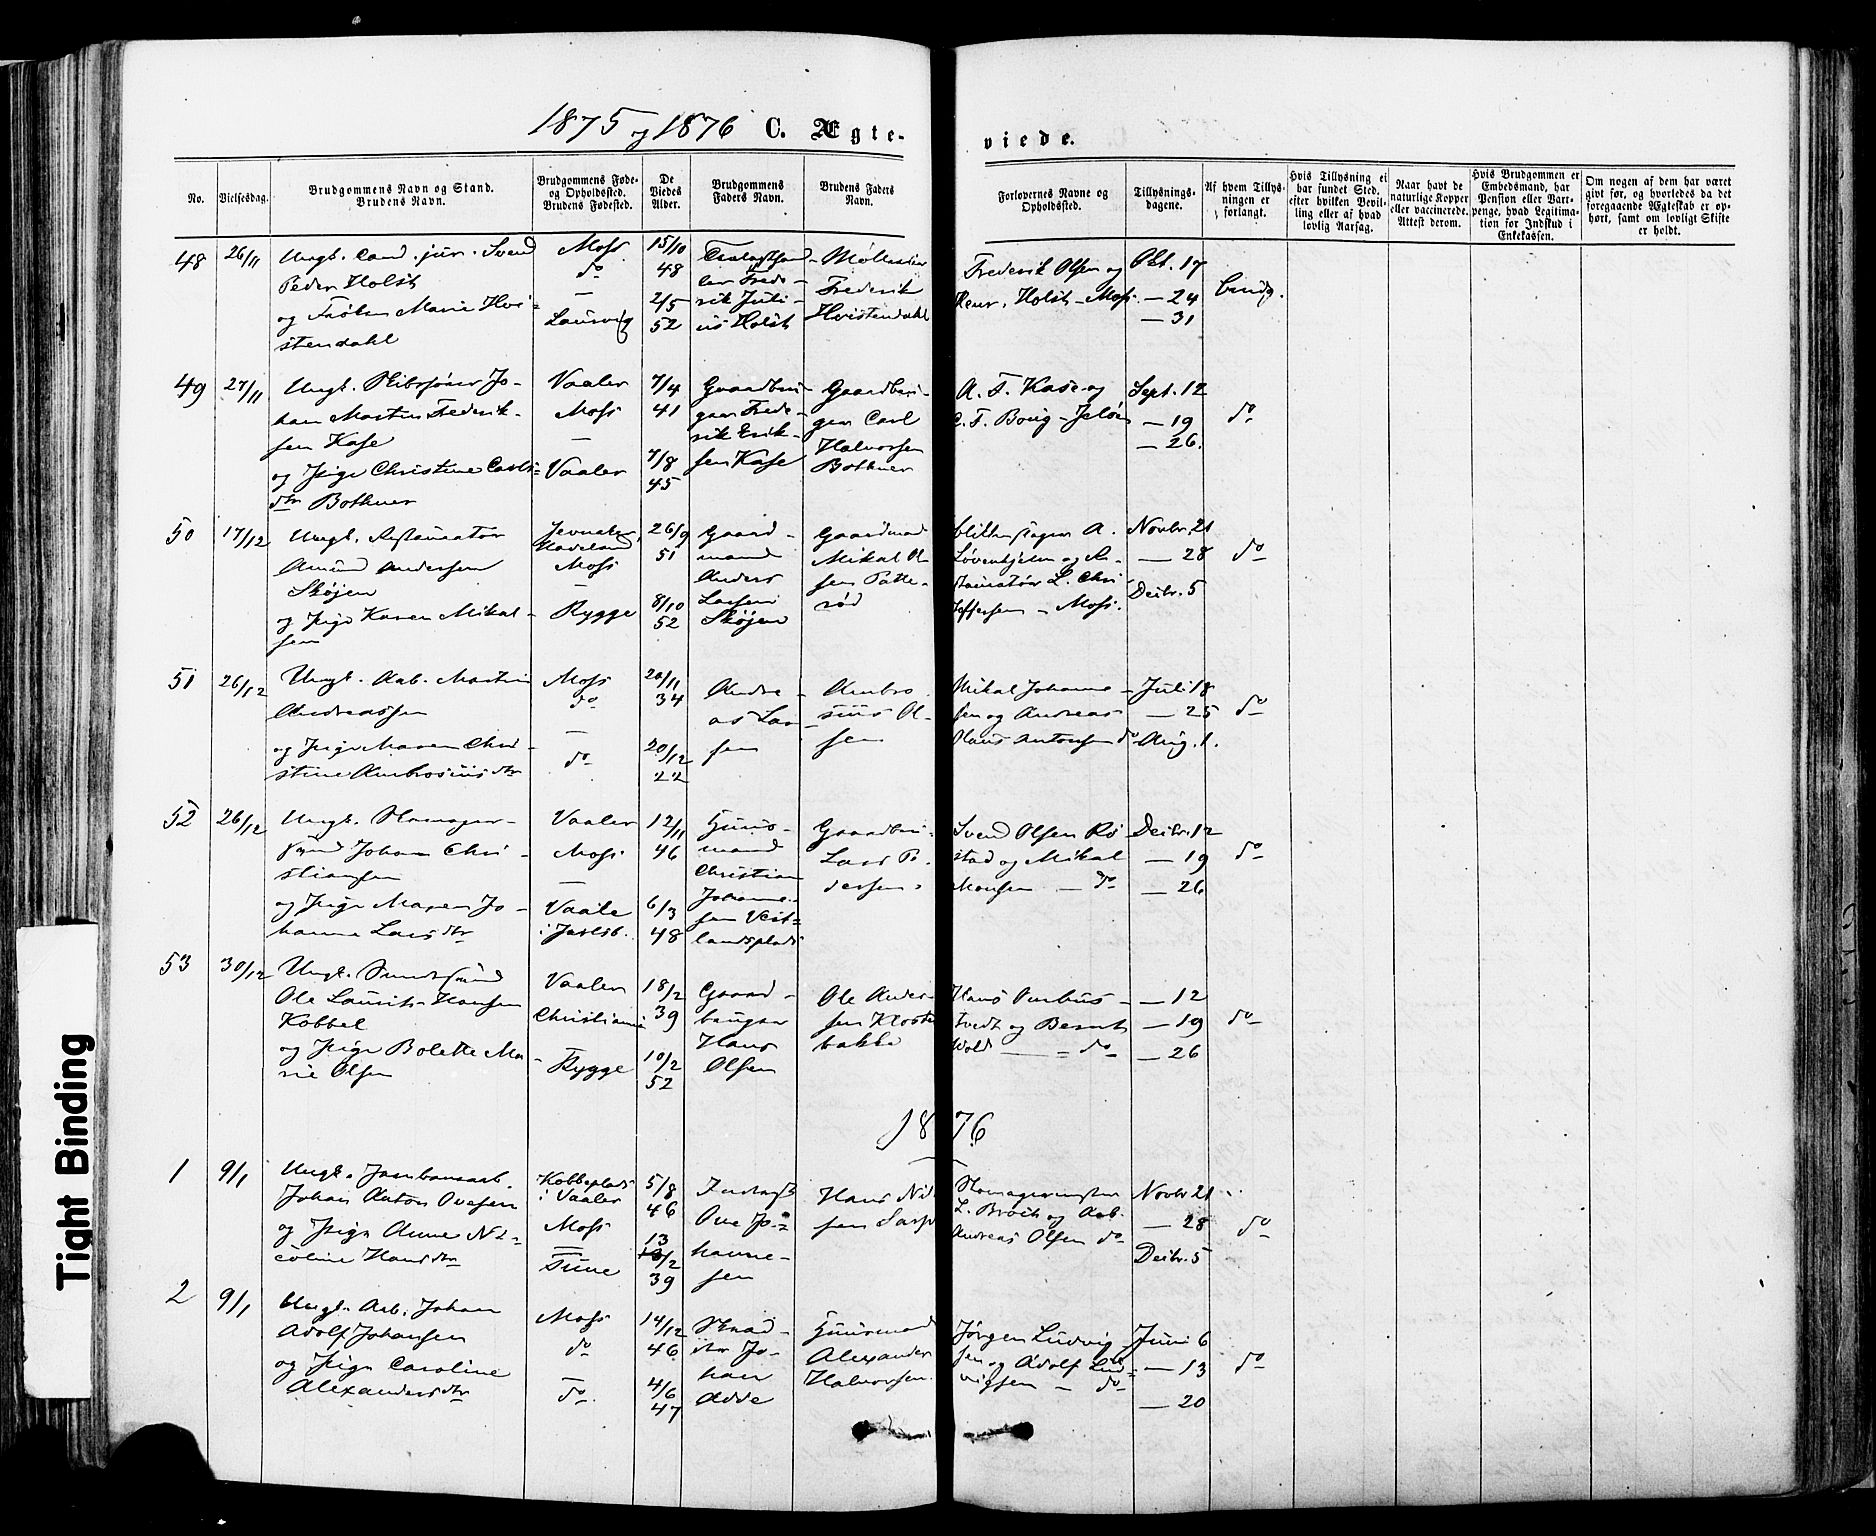 1875 og 1876 C. Ægte-
viede.
No.
Vielsesdag.
Brudgommens Navn og Stand.
Brudens Navn.
Brudgommens Føde-
og Opholdssted.
Brudens Fødested.
De
Viedes
Alder.
Brudgommens
Faders Navn.
Brudens Faders
Navn.
Forlovernes Navne og
Opholdssted.
Tillysnings-
dagene.
Af hvem Tillys-
ningen er
forlangt.
Hvis Tillysning ei
har fundet Sted,
efter hvilken Bevil-
ling eller af hvad
lovlig Aarsag.
Naar havt de
naturlige Kopper
eller vaccinerede.
Attest derom.
Hvis Brudgommen er
Embedsmand, har
Pension eller Vart-
penge, hvad Legitima-
tion for Indskud i
Enkekassen.
Om nogen af dem har været
gift før, og hvorledes da det
foregaaende Ægteskab er op-
hørt, samt om lovligt Skifte
er holdt.
48
26/11
Ungk. Cand. jur. Svend
Peder Holst
og Frøken Marie Hvi-
stendahl
Moss
do
—
Laurvig
15/10
48
2/5
52
ler Frede-
rik Juli-
us Holst
Frederik
Hvistendahl
Frederik Olsen og
Henr. Holst - Moss.
Okt. 17
— 24
— 31
Brudg.
49
27/11
Ungk. Skibsfører Jo-
han Martin Frederik-
sen Kase
og Pige Christine Carls-
dtr Bothner
Vaaler
Moss
—
Vaaler
7/4
41
7/8
45
Gaardbru-
ger Frede-
rik Erik-
sen Kase
Gaardbru-
ger Carl
Halvorsen
Bothner
A. F. Kase og
C. F. Boug - Jeløen
Sept. 12
— 19
— 26.
do
50
17/12
Ungk. Restauratør
Amund Andersen
Skøjen
og Pige Karen Mikal-
sen
Jevnaker,
Hadeland
Moss
—
Rygge
26/9
51
8/10
52
Gaard-
mand
Anders
Larsen
Skøjen
Gaardmand
Mikal Ol
sen Patte-
rød
A.
Løvenhjelm og Re-
stauratør L. Chri
stoffersen - Moss.
Novbr. 21
— 28
Decbr. 5
do
51
26/12
Ungk. Arb. Martin
Andreassen
og Pige Maren Chri-
stine Ambrosius dtr
Moss
do
—
do
20/11
34
20/12
22
Andre-
as Lar-
sen
Ambro
sius Ol-
sen
Mikal Johanne-
sen og Andreas
Hans Antonsen do
Juli 18
— 25
Aug. 1.
do
52
26/12
Ungk. Skomager-
svend Johan Chri-
stiansen
og Pige Maren Jo-
hanne Lars dtr
Vaaler
Moss
—
Vaale
i Jarlsb.
12/11
46
6/3
48
Huus-
mand
Christian
Johanne-
sen Vest-
landsplads
Gaardbru-
Lars Pe-
dersen.
Svend Olsen Rø
stad og Mikal
Monsen — do
Decbr. 12
— 19
— 26
do
53
30/12
Ungk.
Ole Laurits Hansen
Kobbel
og Pige Bolette Ma-
rie Olsen
Vaaler
Christiania
—
Rygge
18/2
39
10/2
52
Gaard-
bruger
Hans
Olsen
Ole Ander-
sen Kloster
bakke
Hans
tvedt og Bernt
Wold — do
— 12
— 19
— 26
do
1876
1
9/1
Ungk. Jernbanearb.
Johan Anton Ovesen
og Pige Anne Ni-
coline Hans dtr
Kobbeplads
i Vaaler
Moss
—
Tune
5/8
46
13
/2
39
Inderst
Ove Jo-
hanne-
sen
Hans Nil
sen Sarp
Skomagermester
L. Broch og Arb.
Andreas Olsen do
Novbr. 21
— 28
Decbr. 5
do
2
9/1
Ungk. Arb. Johan
Adolf Johansen
og Pige Caroline
Alexanders dtr
Moss
do
—
do
14/12
46
4/6
47
Skræd-
der Jo-
han
Adde
Huusmand
Alexander
Halvorsen
Jørgen Ludvig
sen og Adolf Lud-
vigsen — do
Juni 6
— 13
— 20
do
Tight Binding